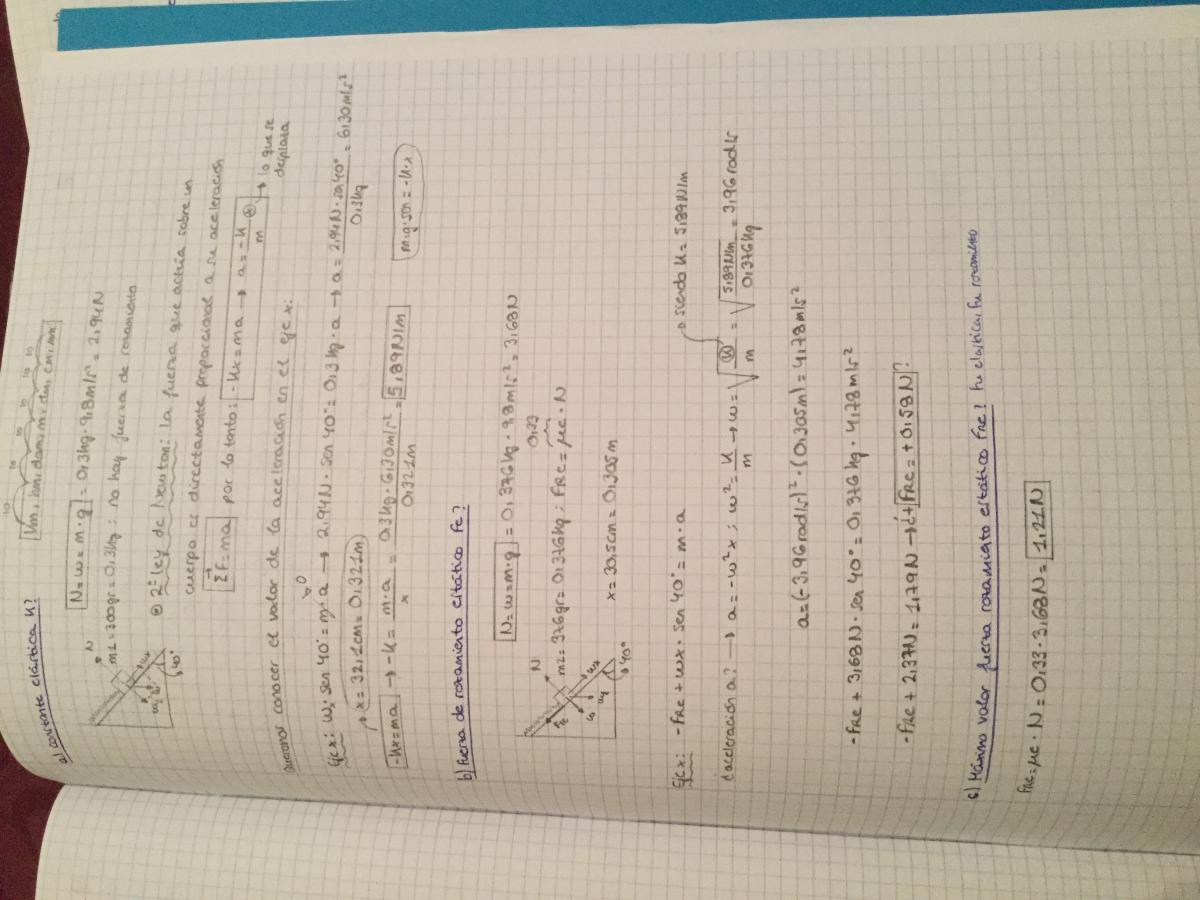 10 10 10 10 10 10
Km, hm, dam, m, dm, cm, mm
a) constante elástica K?
N = w = m · g = 0,3kg · 9,8m/s² = 2,94N
m1 = 300gr = 0,3kg ; no hay fuerza de rozamiento
N
wx
wy
w
40°
⊙ 2ª ley de Newton: la fuerza que actúa sobre un
cuerpo es directamente proporcional a su aceleración
ΣF = ma por lo tanto: -Kx = ma → a = -K x / m → lo que se desplaza
Queremos conocer el valor de la aceleración en el eje x:
Eje x: wx · sen 40° = m · a → 2,94N · sen 40° = 0,3kg · a → a = 2,94N · sen 40° / 0,3kg = 6,30m/s²
x = 32,1cm = 0,321m
-Kx = ma → -K = m · a / x = 0,3kg · 6,30m/s² / 0,321m = 5,89N/m
m·g·sen = -K·x
b) Fuerza de rozamiento estático Fe?
N = w = m · g = 0,376kg · 9,8m/s² = 3,68N
0,33
m2 = 376gr = 0,376kg ; FRe = μe · N
x = 30,5cm = 0,305m
N
FRe
w
wy
wx
40°
Eje x: -FRe + wx · sen 40° = m · a
→ siendo K = 5,89N/m
¿aceleración a? → a = -w²x ; w² = K / m → w = √ K / m = √ 5,89N/m / 0,376kg = 3,96rad/s
a = (-3,96rad/s)² · (0,305m) = 4,78m/s²
-FRe + 3,68N · sen 40° = 0,376kg · 4,78m/s²
-FRe + 2,37N = 1,79N → ¿+FRe = +0,58N?
c) Máximo valor fuerza rozamiento estático FRe? Fu elástica, Fu rozamiento
FRe = μe · N = 0,33 · 3,68N = 1,21N